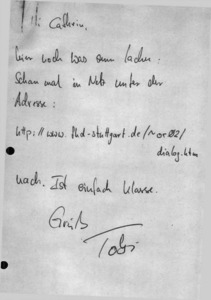 Hi Cathrin,
hier noch was zum lachen.
Schau mal im Netz unter der
Adresse:
http://www.fhd-stuttgart.de/~or02/
dialog.htm
nach. Ist einfach klasse.
Gruß
Tobi